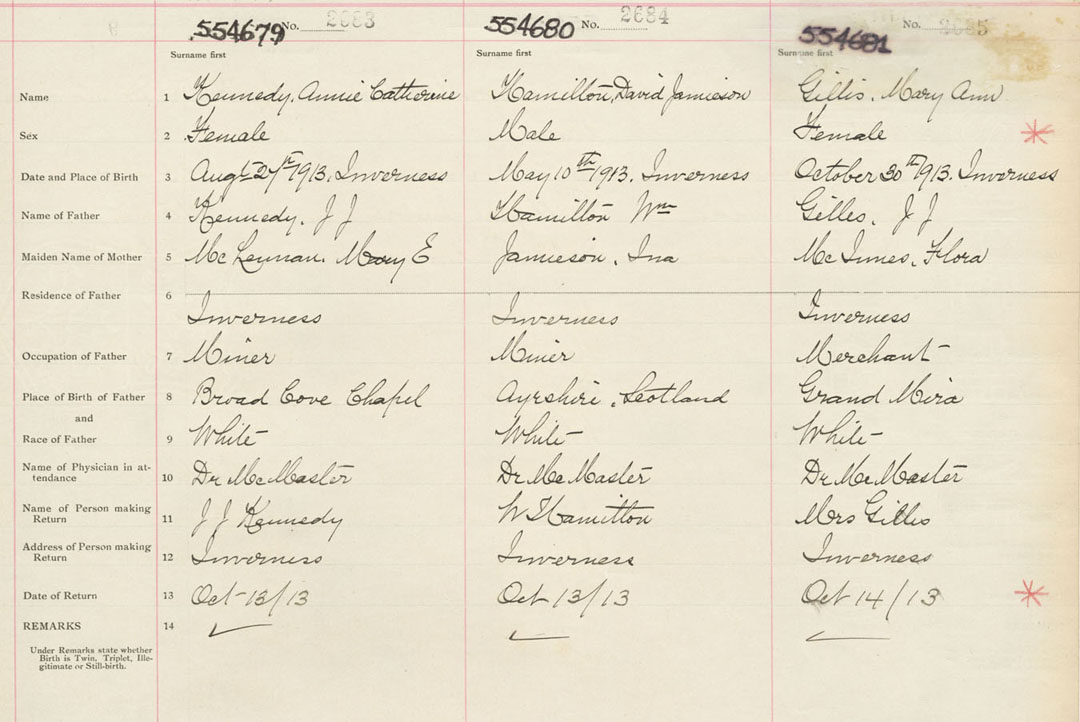 554679 No. 2683 554680 No. 2684 554681 No. 2685
Surname first Surname first Surname first
Name 1 Kennedy, Annie Catherine Hamilton, David Jamieson Gillis, Mary Ann
Sex 2 Female Male Female
Date and Place of Birth 3 Augt 27th 1913. Inverness May 10th 1913. Inverness October 30th 1913. Inverness
Name of Father 4 Kennedy, J J Hamilton Wm Gilles, J J
Maiden Name of Mother 5 McLennan. Mary E Jamieson, Ina McInnes, Flora
Residence of Father 6
Inverness Inverness Inverness
Occupation of Father 7 Miner Miner Merchant
Place of Birth of Father 8 Broad Cove Chapel Ayrshire, Scotland Grand Mira
and
Race of Father 9 White White White
Name of Physician in at-
tendance 10 Dr McMaster Dr McMaster Dr McMaster
Name of Person making
Return 11 J J Kennedy W Hamilton Mrs Gilles
Address of Person making
Return 12 Inverness Inverness Inverness
Date of Return 13 Oct 13/13 Oct 13/13 Oct 14/13
REMARKS 14
Under Remarks state whether
Birth is Twin, Triplet, Ille-
gitimate or Still-birth.